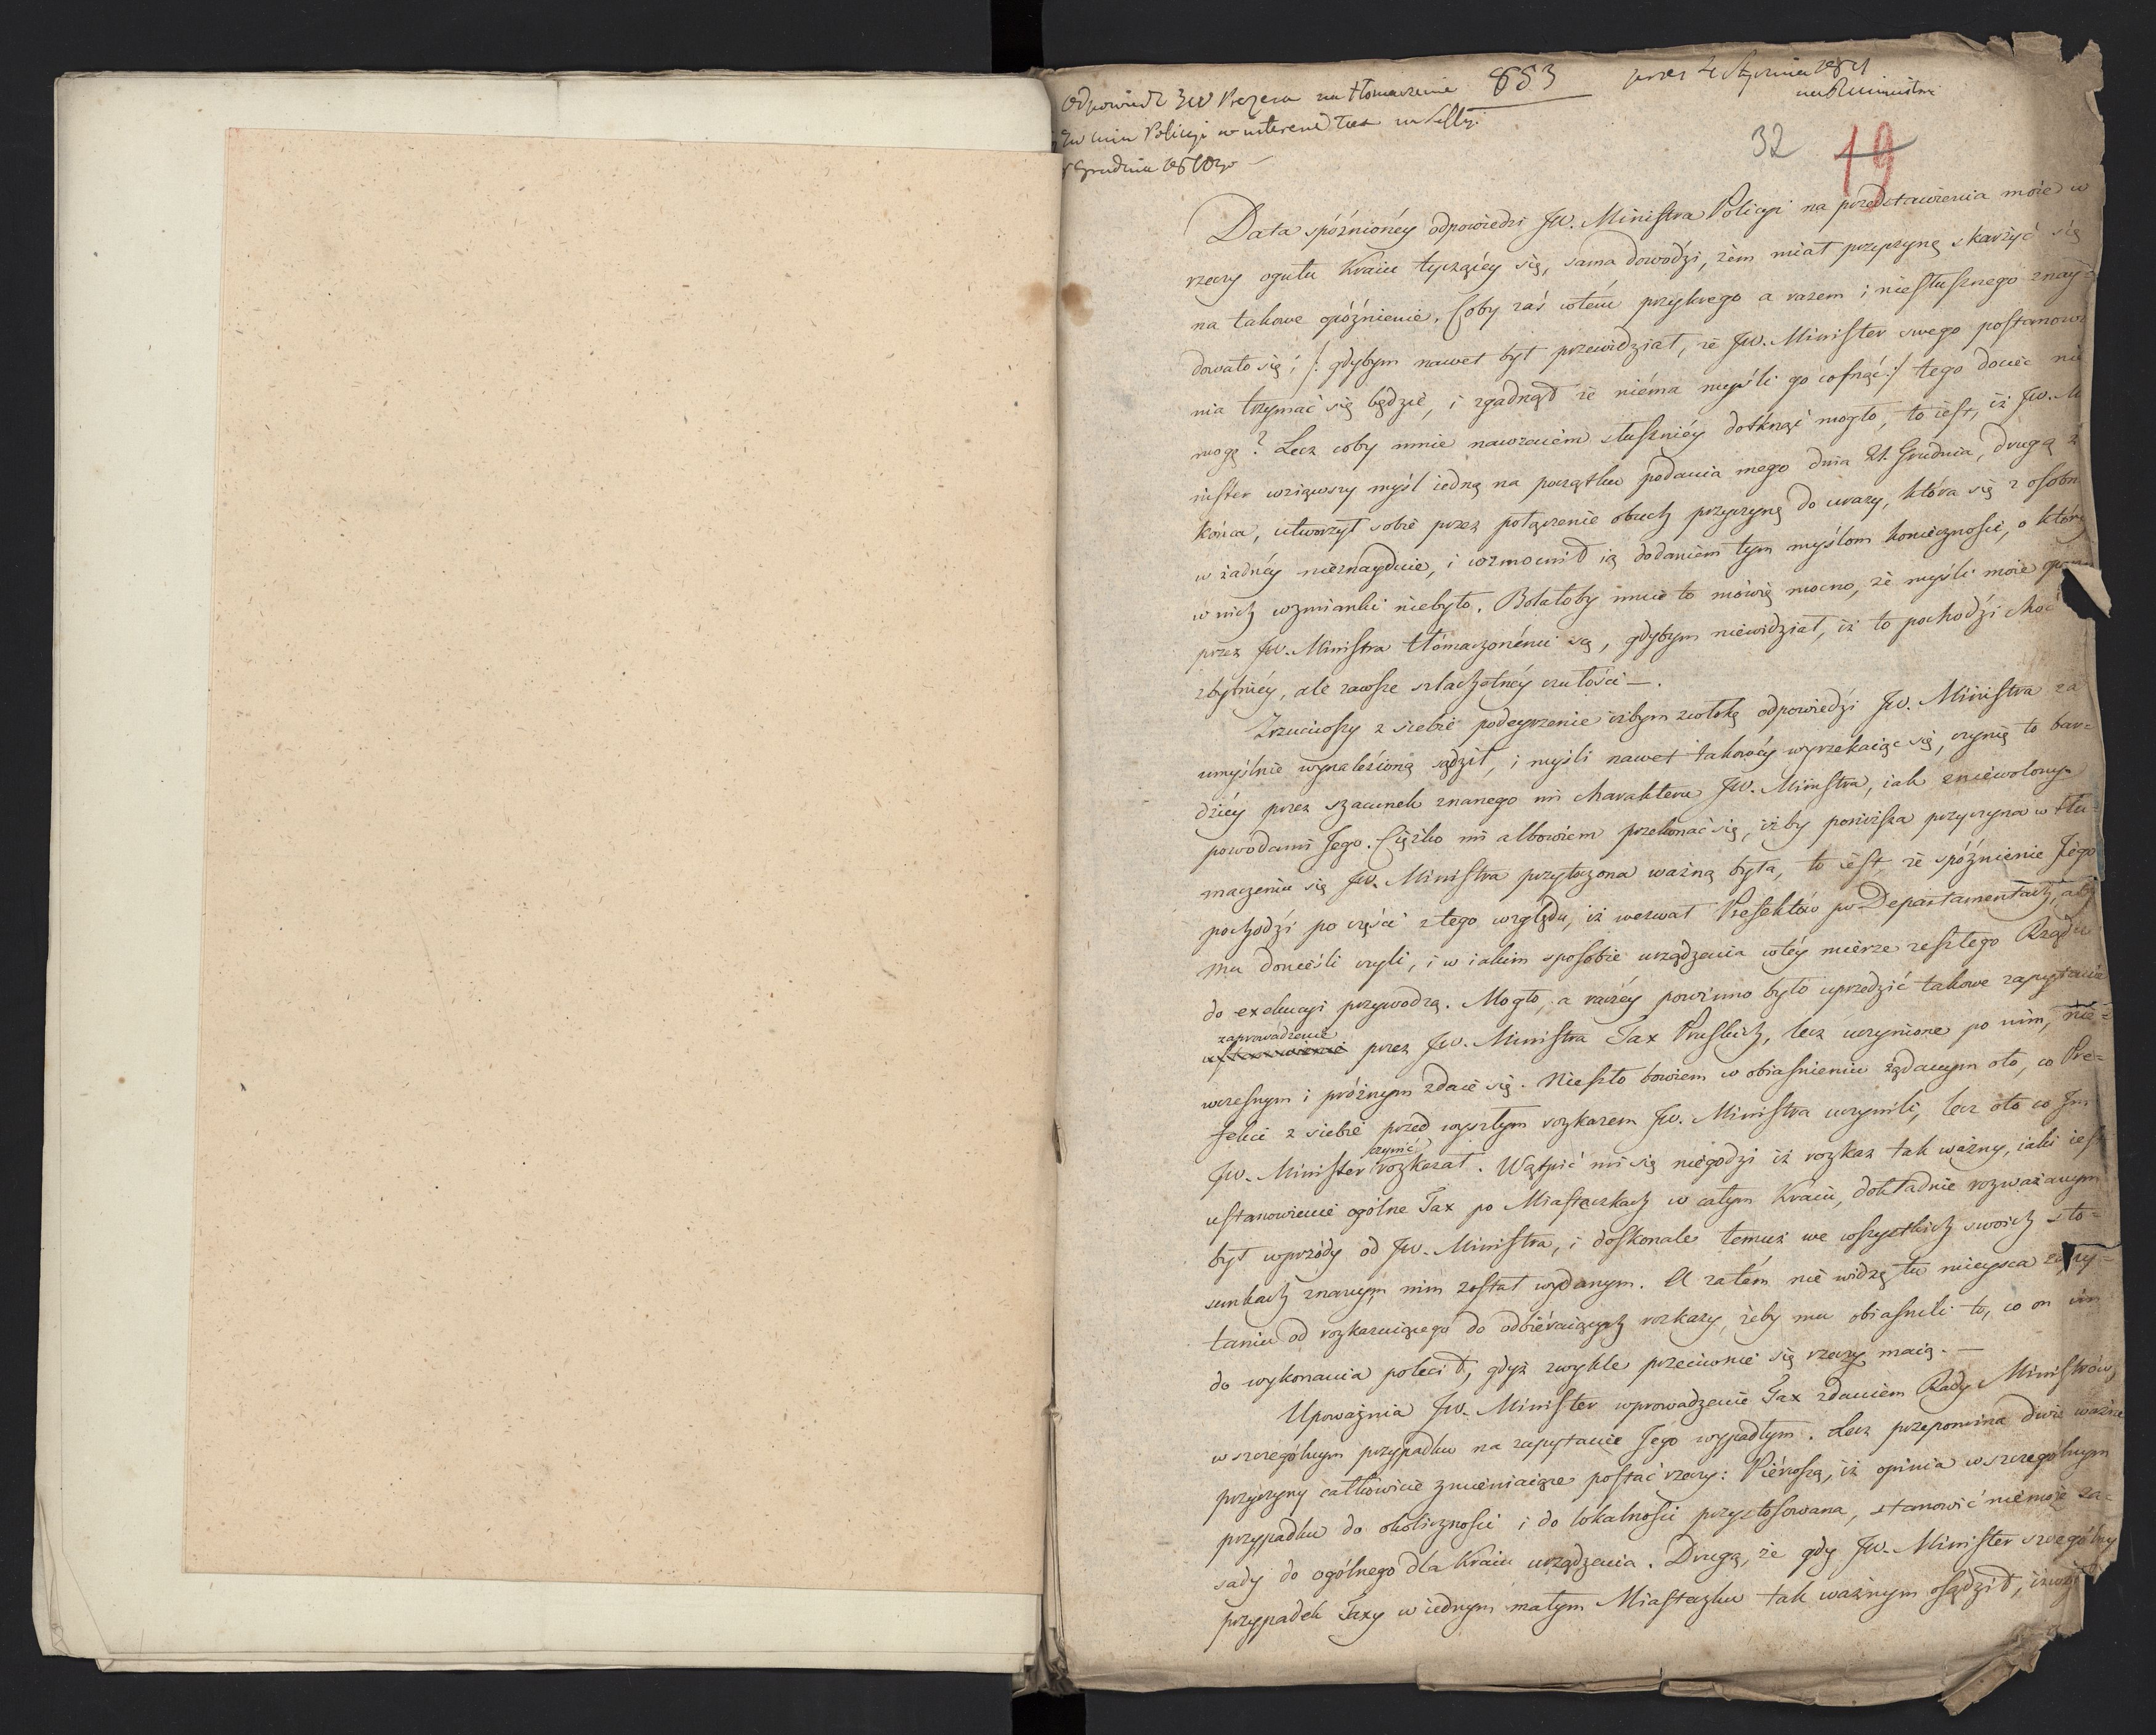 Odpowiedź JW Prezesa na tłomaczenie 853 prez 4 Stycznia 1811
na Ministra
JW Min Policyi w interesie Tax na
Grudnia 1810go
32 19
Data spóźnionéy odpowiedzi JW. Ministra Policyi na przedstawienia moie w
rzeczy ogułu Kraiu tyczącéy się, sama dowodzi, żem miał przyczynę skarżyć się
na takowe opóźnienie. Coby zaś wtém przykrego a razem i niesłusznego znay=
dowało się, /: gdybym nawet był przewidział, że JW. Minister swego postanowie
nia trzymać się będzie, i zgadnął że niéma myśli go cofnąć :/ tego dociec nie
mogę? Lecz coby mnie nawzaiem słuszniéy dotknąć mogło, to iest, iż JW. Mi
nister wziąwszy myśl iedną na początku podania mego dnia 21. Grudnia, drugą z
końca, utworzył sobie przez połączenie obuch przyczynę do urazy, która się z osobna
w żadnéy nieznayduie, i wzmocnił ią dodaniem tym myślom konieczności, o któréy
w nich wzmianki niebyło. Bolałoby mnie to mówię mocno, że myśli moie
przez JW. Ministra tłómaczonémi są, gdybym niewidział, iż to pochodzi choć
zbytniéy, ale zawsze szlachetnéy czułości —.
Zrzuciwszy z siebie podeyrzenie iżbym zwłokę odpowiedzi JW. Ministra za
umyślnie wynalezioną sądził, i myśli nawet takowéy wyrzekaiąc się, czynię to bar=
dziéy przez szacunek znanego mi charakteru JW. Ministra, iak zniewolony
powodami Jego. Ciężko mi albowiem przekonać się, iżby poniższa przyczyna w tłu=
maczeniu się JW. Ministra przytoczona ważną była, to iest, że spóźnienie Jego
pochodzi po części z tego względu, iż wezwał Prefektów po Departamentach, aby
mu donieśli czyli, i w iakim sposobie urządzenia wtéy mierze zeszłego Rządu
do exekucyi przywodzą. Mogło, a raczéy powinno było uprzedzić takowe zapytanie
zaprowadzenie
przez JW. Ministra Tax Pruskich, lecz uczynione po nim, nie=
wczesnym i próżnym zdaie się. Nieszło bowiem w obiaśnieniu żądanym oto, co Pre=
fekci z siebie przed wyszłym rozkazem JW. Ministra uczynili, lecz oto co Im
czynić
JW. Minister rozkazał. Wątpić mi się niegodzi iż rozkaz tak ważny, iaki iest
ustanowienie ogólne Tax po Miasteczkach w całym Kraiu, dokładnie rozważanym
był wprzódy od JW. Ministra, i doskonale temuż we wszystkich swoich sto=
sunkach znanym nim został wydanym. A zatém nie widzę tu mieysca zapy=
taniu od rozkazuiącego do odbiéraiących rozkazy, żeby mu obiaśnili to, co on im
do wykonania polecił, gdyż zwykle przeciwnie się rzeczy maią. —
Upoważnia JW. Minister wprowadzenie Tax zdaniem Rady Ministrów,
w szczególnym przypadku na zapytanie Jego wypadłym. Lecz przepomina dwie ważne
przyczyny całkowicie zmieniaiące postać rzeczy: Piérwszą, iż opinia w szczególnym
przypadku do okoliczności i do lokalności przystosowana, stanowić niemoże za=
sady do ogólnego dla Kraiu urządzenia. Drugą, że gdy JW. Minister szczególny
przypadek Taxy w iednym małym Miasteczku tak ważnym osądził, iż